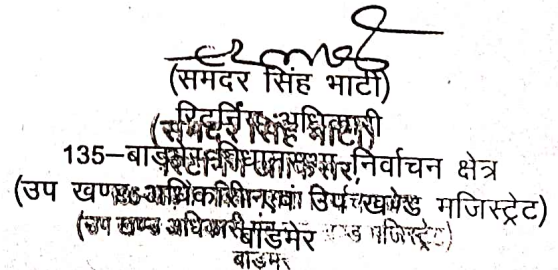 (समदर सिंह भाटी)
रिटर्निंग अधिकारी
(समदर सिंह भाटी)
135–बाड़मेर विधानसभा निर्वाचन क्षेत्र
(उप खण्ड अधिकारी एवं उप खण्ड मजिस्ट्रेट)
(उप खण्ड अधिकारी मजिस्ट्रेट)
बाड़मेर
बाड़मेर